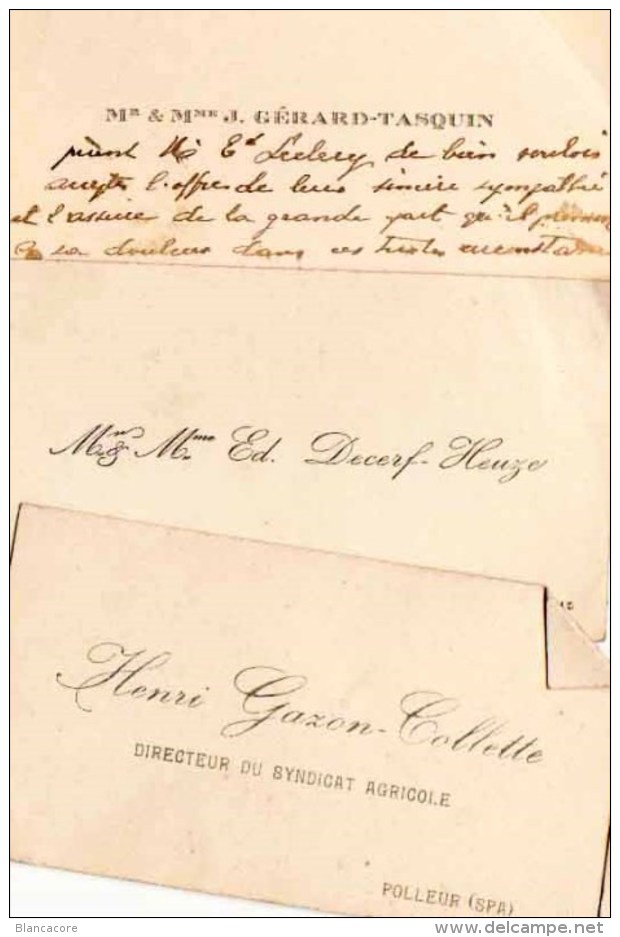 Mr & Mme J. GÉRARD-TASQUIN
prient Mr Ed Leclercq de bien vouloir
accepter l'offre de leur sincère sympathie
et l'assure de la grande part qu'il prennent
à sa douleur dans ces tristes
Mr. & Mme. Ed. Decerf-Heuze
Henri Gazon-Collette
DIRECTEUR DU SYNDICAT AGRICOLE
POLLEUR (SPA)
Blancacore
www.delcampe.net